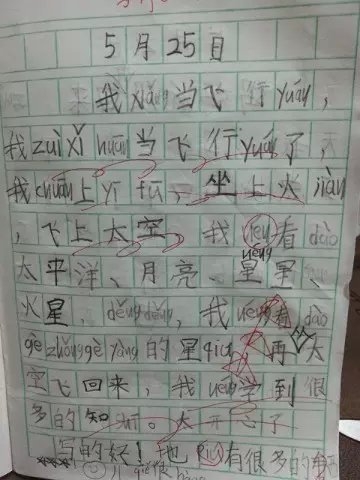 5月25日
我xiǎng当飞行yuán，
我zuì xǐ huān当飞行yuán了，
我chuān上yī fú，坐上火jiàn
，飞上太空。我néng看dào
太平洋、月亮、星星、
火星，děng děng，我néng看dào
gè zhǒng gè yàng的星qiú，再从太
空飞回来，我néng学到很
多的知shi。太开心了
写的好！地qiú有很多的